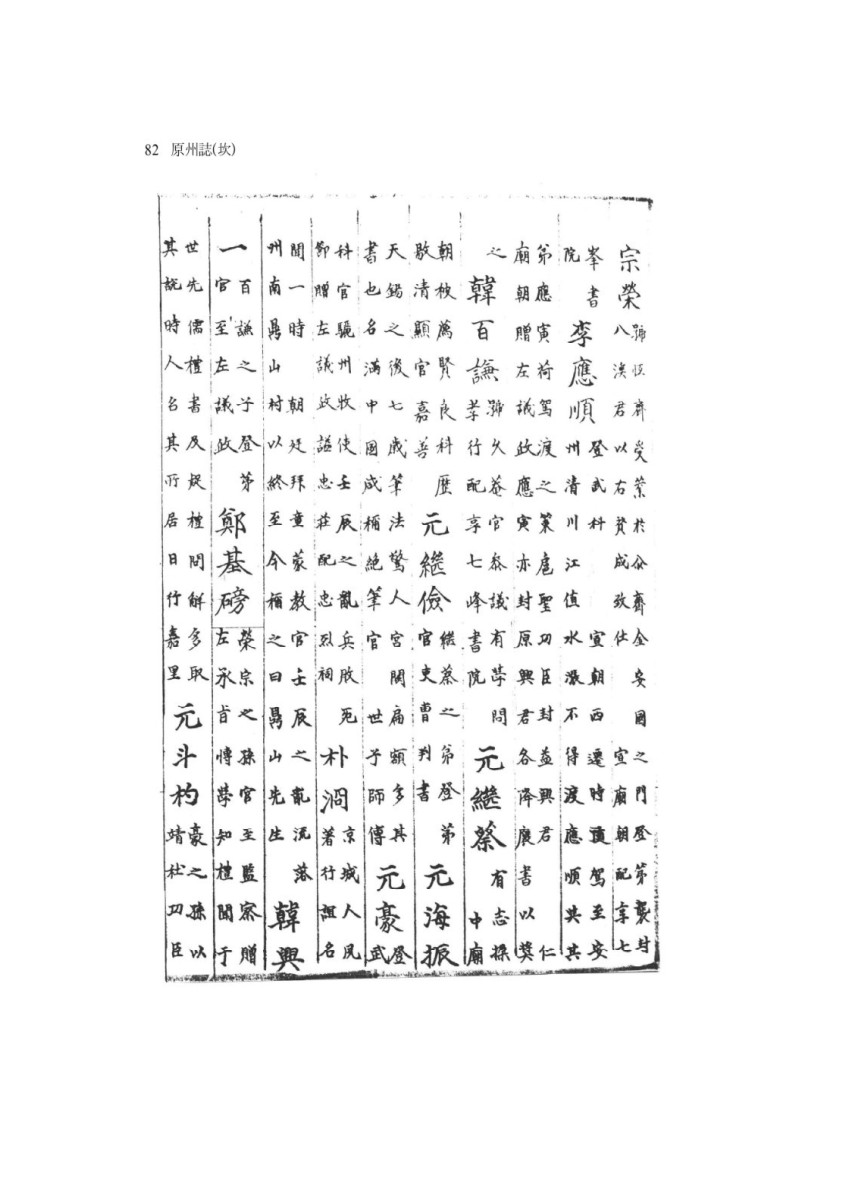 82 原州誌(坎)
宗榮 號恒齋受業於企齋金安國之門登第襲封
八溪君以右贊成致仕 宣廟朝配享七
峯書
院
李應順 登武科 宣朝西遷時護駕至安
州清川江值水漲不得渡應順與其
弟應寅荷駕渡之策扈聖功臣封益興君 仁
廟朝贈左議政應寅亦封原興君各降宸書以奬
之
韓百謙 號久菴官參議有學問
孝行配享七峰書院
元繼蔡 有志操
中廟
朝被薦賢良科歷
敭清顯官嘉善
元繼儉 繼蔡之弟登第
官吏曹判書
元海振
天錫之後七歲筆法驚人宮闕扁額多其
書也名滿中國咸稱絶筆官 世子師傅
元豪 登
武
科官驪州牧使壬辰之亂兵敗死
節贈左議政謚忠莊配忠烈祠
朴洞 京城人夙
著行誼名
聞一時 朝廷拜童蒙教官壬辰之亂流落
州南鳧山村以終至今稱之曰鳧山先生
韓興
一 百謙之子登第
官至左議政
鄭基磅 榮宗之孫官至監察贈
左承旨博學知禮聞于
世先儒禮書及疑禮問解多取
其說時人名其所居曰行嘉里
元斗杓 豪之孫以
靖社功臣